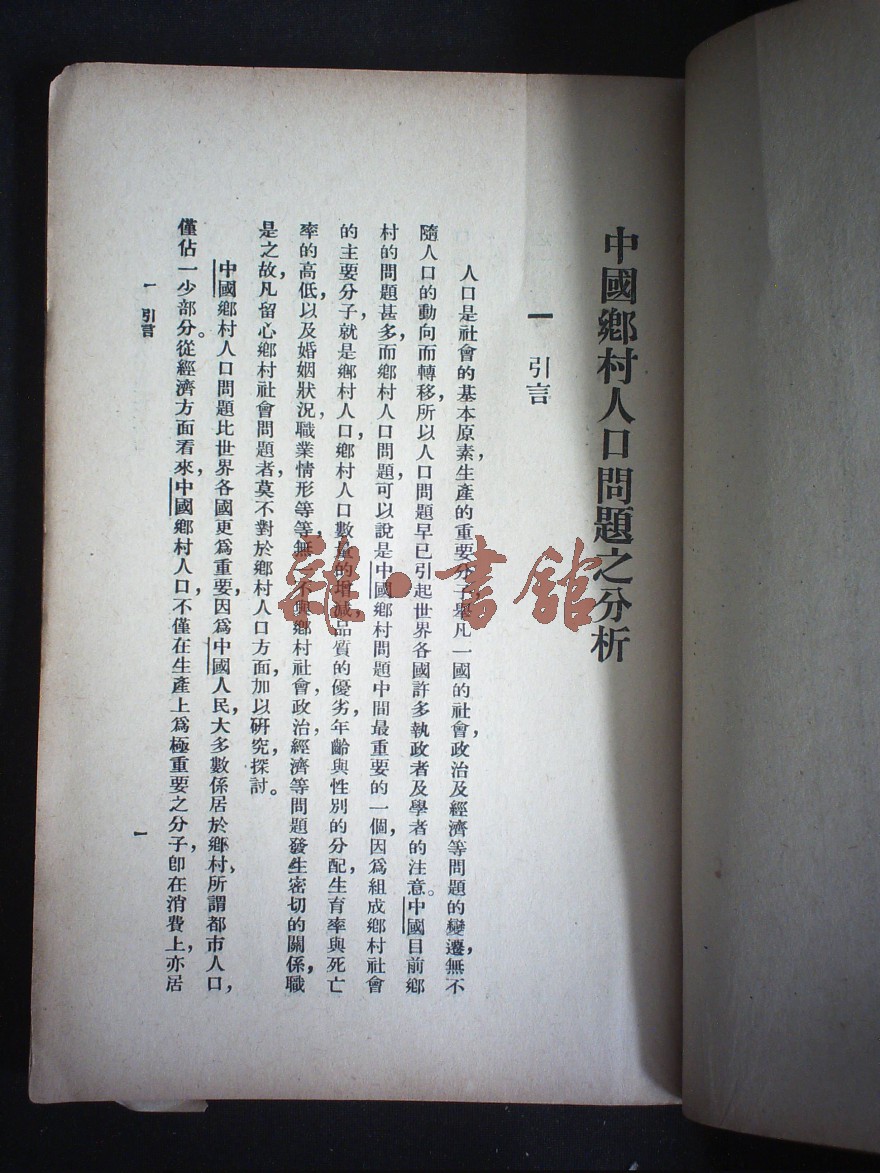 中國鄉村人口問題之分析
一　引言
人口是社會的基本原素，生產的重要分子，舉凡一國的社會政治及經濟等問題的變遷，無不
隨人口的動向而轉移，所以人口問題早已引起世界各國許多執政者及學者的注意。中國目前鄉
村的問題甚多，而鄉村人口問題，可以說是中國鄉村問題中間最重要的一個，因爲組成鄉村社會
的主要分子，就是鄉村人口，鄉村人口數量的增減，品質的優劣，年齡與性別的分配，生育率與死亡
率的高低，以及婚姻狀況，職業情形等等，無一不與鄉村社會，政治，經濟等問題發生密切的關係，職
是之故，凡留心鄉村社會問題者，莫不對於鄉村人口方面，加以研究，探討。
中國鄉村人口問題比世界各國更爲重要，因爲中國人民，大多數係居於鄉村，所謂都市人口，
僅佔一少部分。從經濟方面看來，中國鄉村人口，不僅在生產上爲極重要之分子，卽在消費上，亦居
一　引言
一
龍·書館